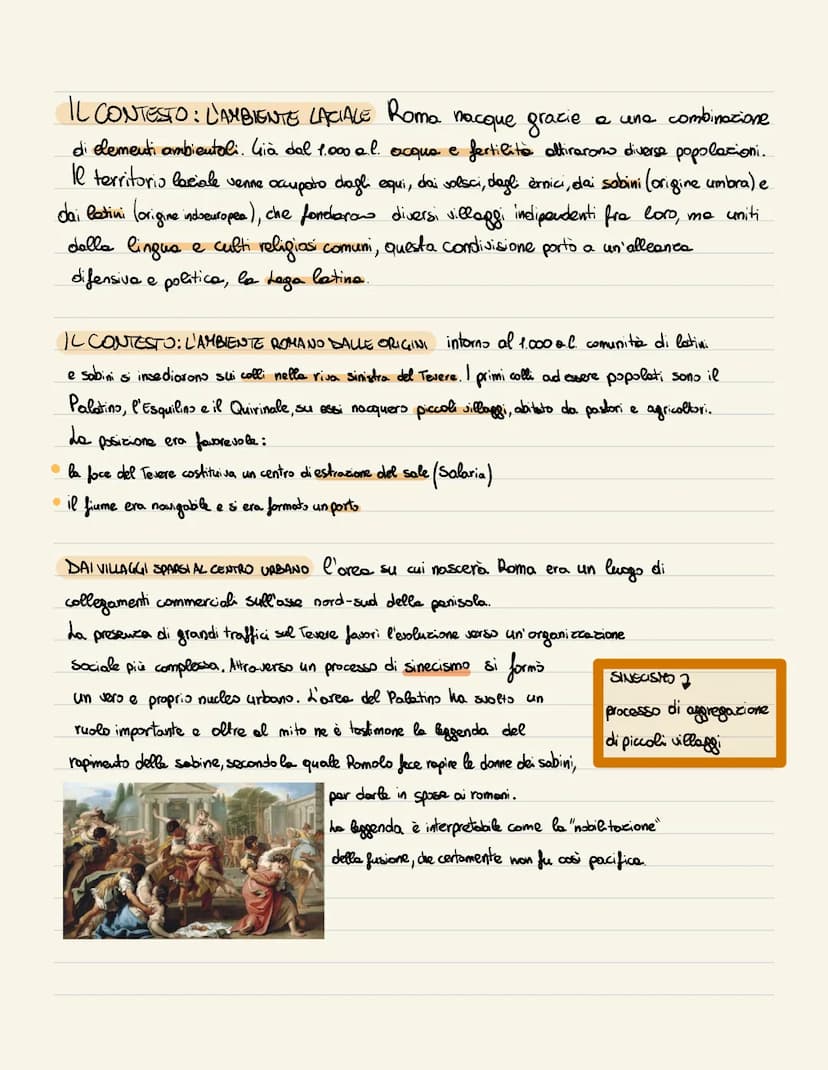 IL CONTESTO: L'AMBIENTE LAZIALE Roma nacque grazie a una combinazione
di elementi ambientali. Già dal 1.000 a.C. acqua e fertilità attirarono diverse popolazioni.
Il territorio laziale venne occupato dagli equi, dai volsci, dagli èrnici, dai sabini (origine umbra) e
dai latini (origine indoeuropea), che fondarono diversi villaggi indipendenti fra loro, ma uniti
dalla lingua e culti religiosi comuni, questa condivisione portò a un'alleanza
difensiva e politica, la Lega latina.
IL CONTESTO: L'AMBIENTE ROMANO DALLE ORIGINI intorno al 1.000 a.C. comunità di latini
e sabini si insediarono sui colli nella riva sinistra del Tevere. I primi colli ad essere popolati sono il
Palatino, l'Esquilino e il Quirinale, su essi nacquero piccoli villaggi, abitato da pastori e agricoltori.
La posizione era favorevole:
• la foce del Tevere costituiva un centro di estrazione del sale (Salaria)
• il fiume era navigabile e si era formato un porto
DAI VILLAGGI SPARSI AL CENTRO URBANO l'area su cui nascerà Roma era un luogo di
collegamenti commerciali sull'asse nord-sud della penisola.
La presenza di grandi traffici sul Tevere favorì l'evoluzione verso un'organizzazione
sociale più complessa. Attraverso un processo di sinecismo si formò
un vero e proprio nucleo urbano. L'area del Palatino ha svolto un
ruolo importante e oltre al mito ne è testimone la leggenda del
rapimento delle sabine, secondo la quale Romolo fece rapire le donne dei sabini,
per darle in spose ai romani.
La leggenda è interpretabile come la "nobilitazione"
della fusione, che certamente non fu così pacifica.
SINECISMO
processo di aggregazione
di piccoli villaggi